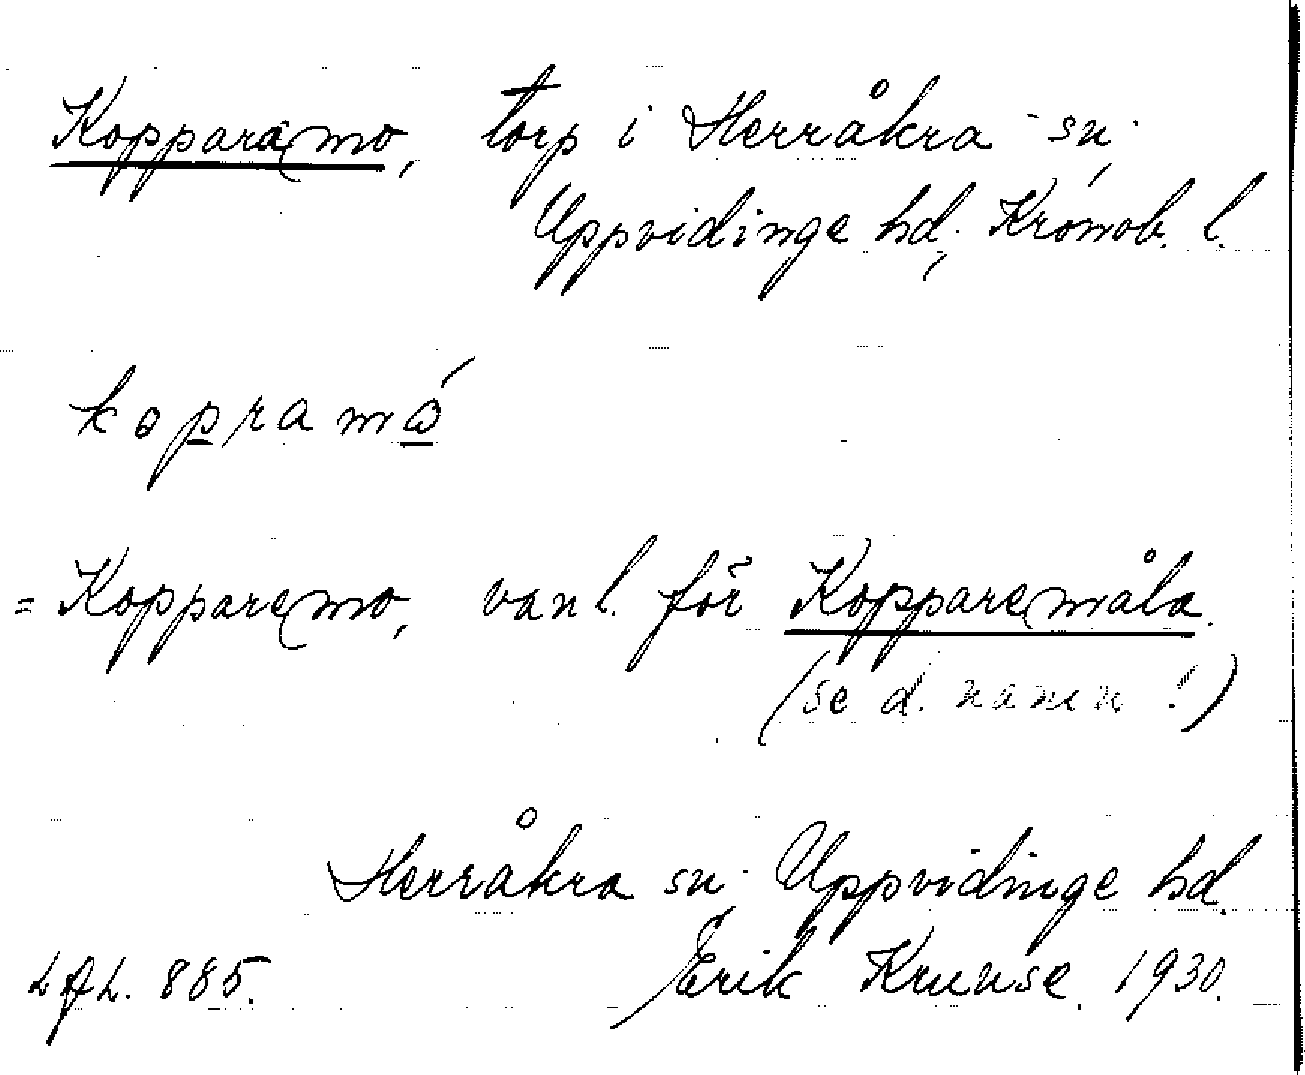 Kopparamo, torp i Herråkra sn.
Uppvidinge hd, Kronob. l.
kopramó
= Kopparemo, vanl. för Kopparemåla.
(se d. namn!)
Herråkra sn. Uppvidinge hd.
Erik Kruuse. 1930.
LAL. 885.